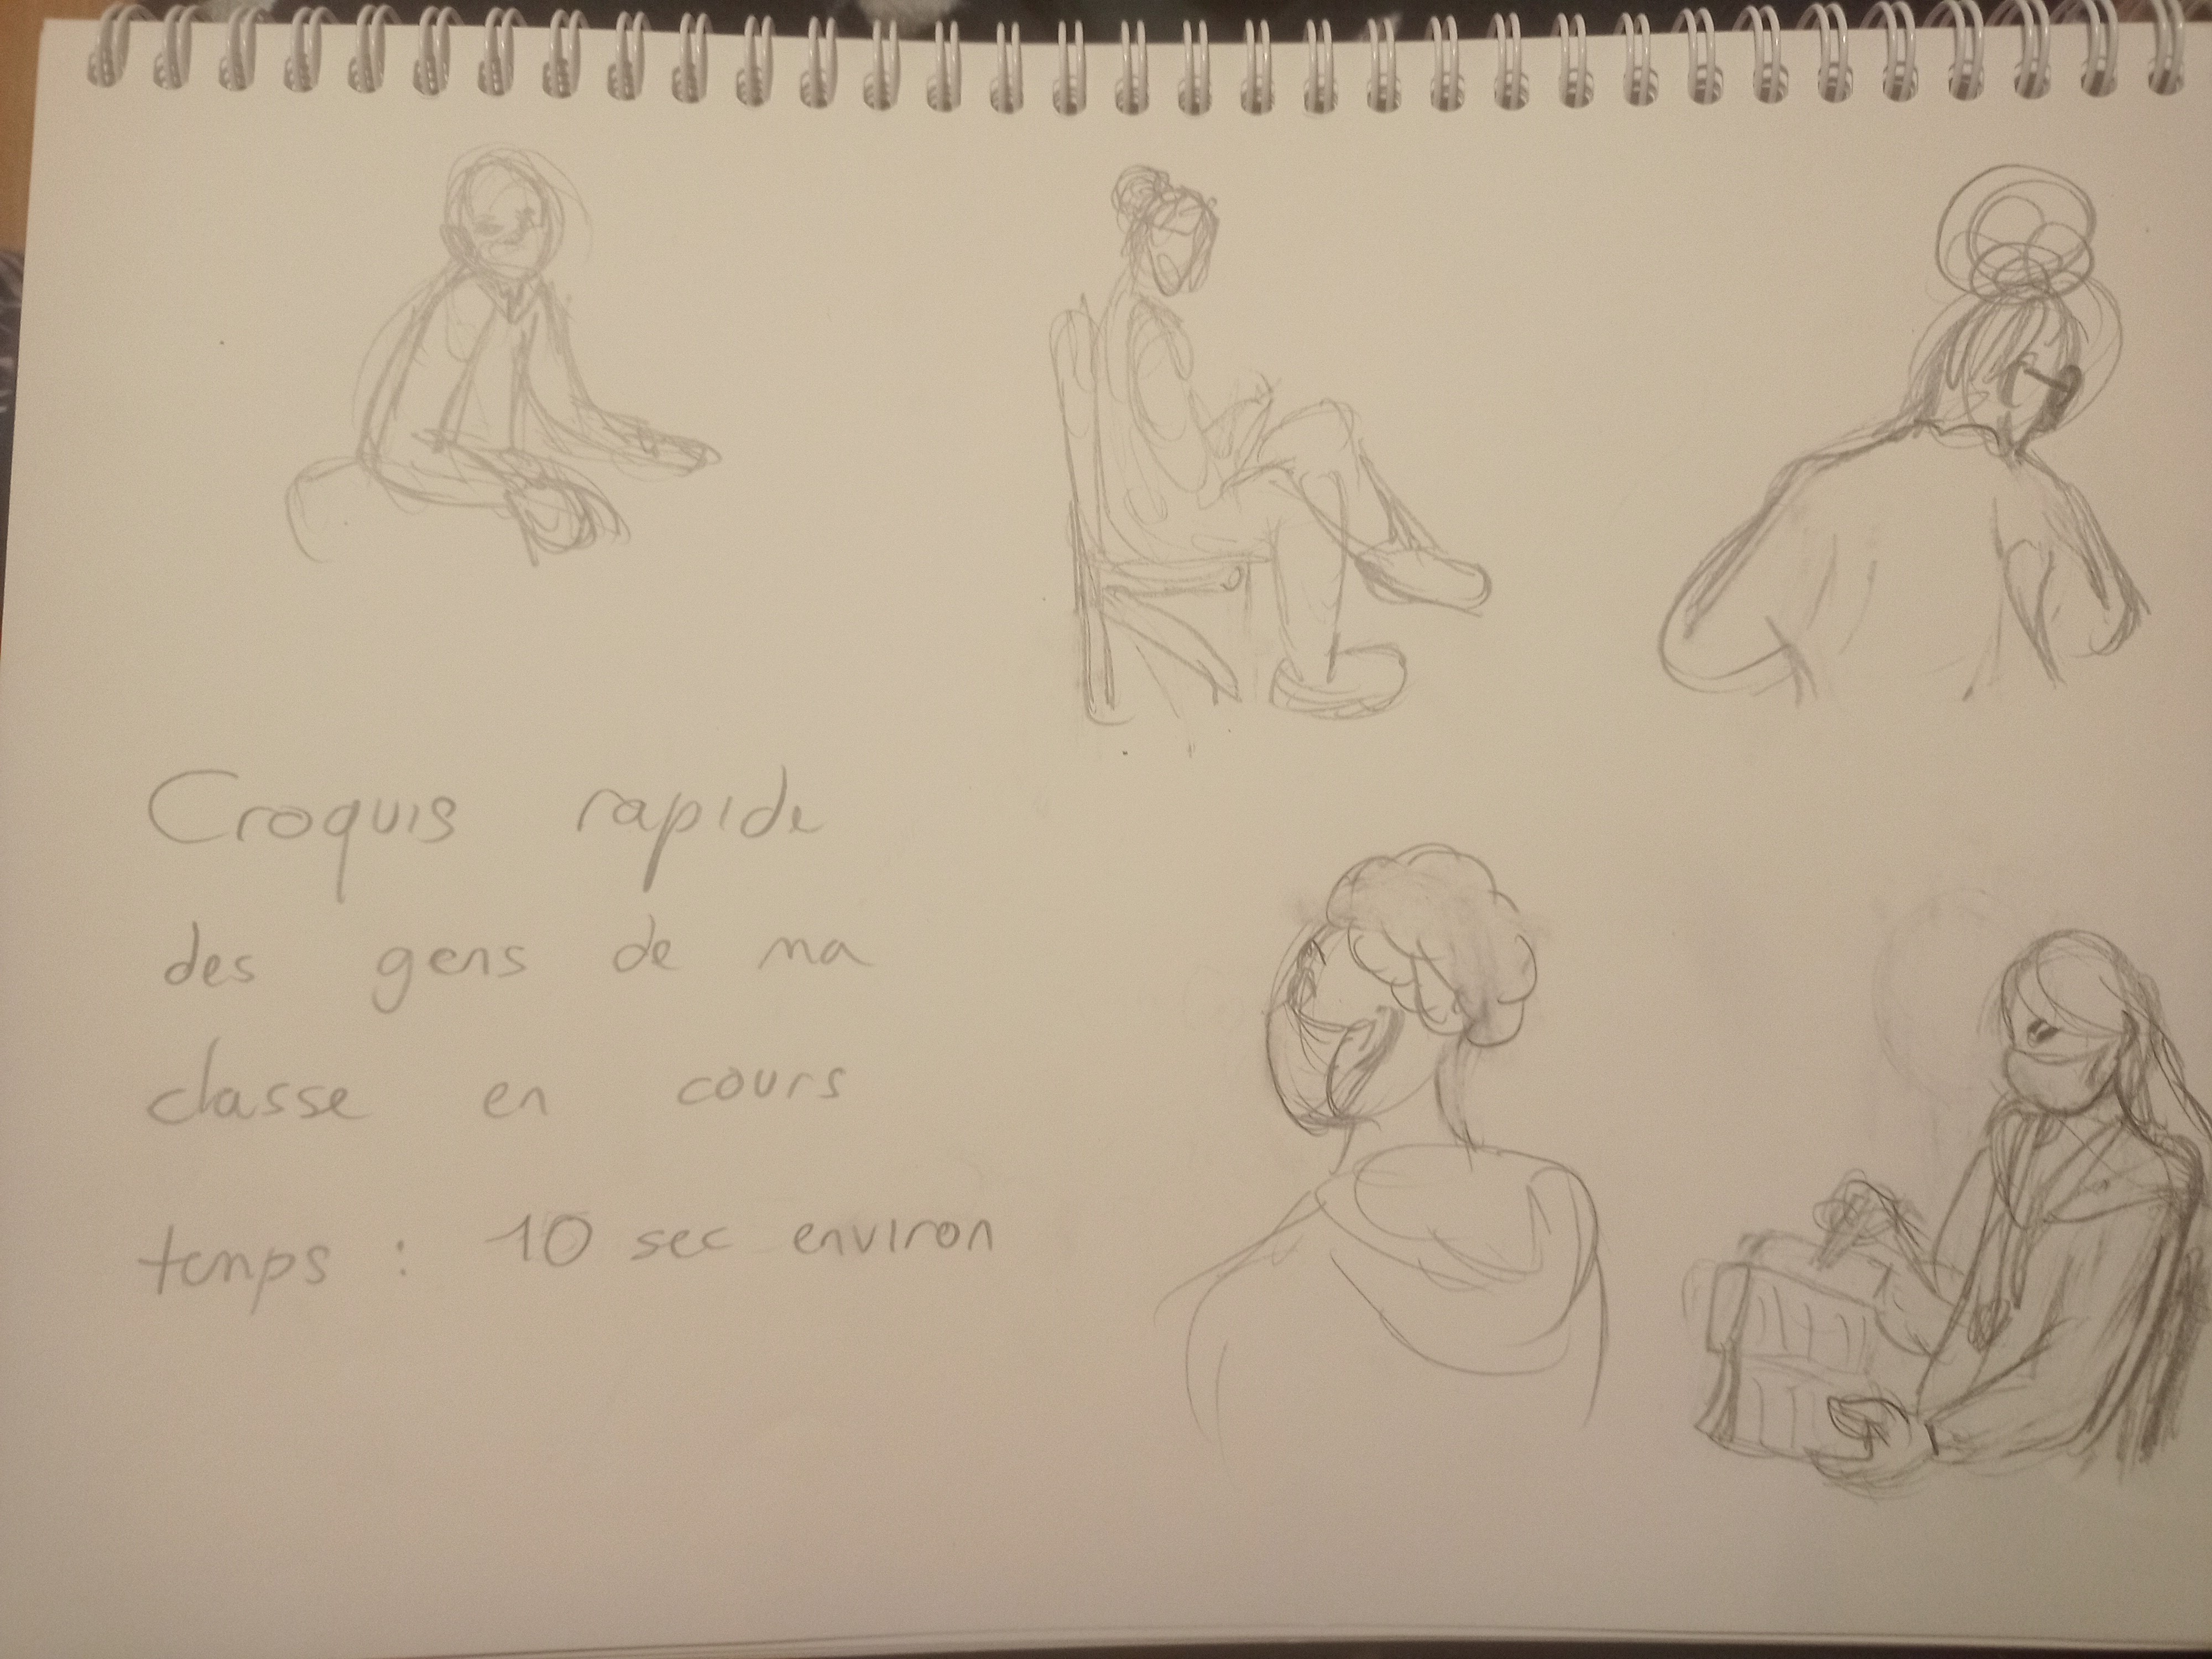 Croquis rapide
des gens de ma
classe en cours
temps : 10 sec environ